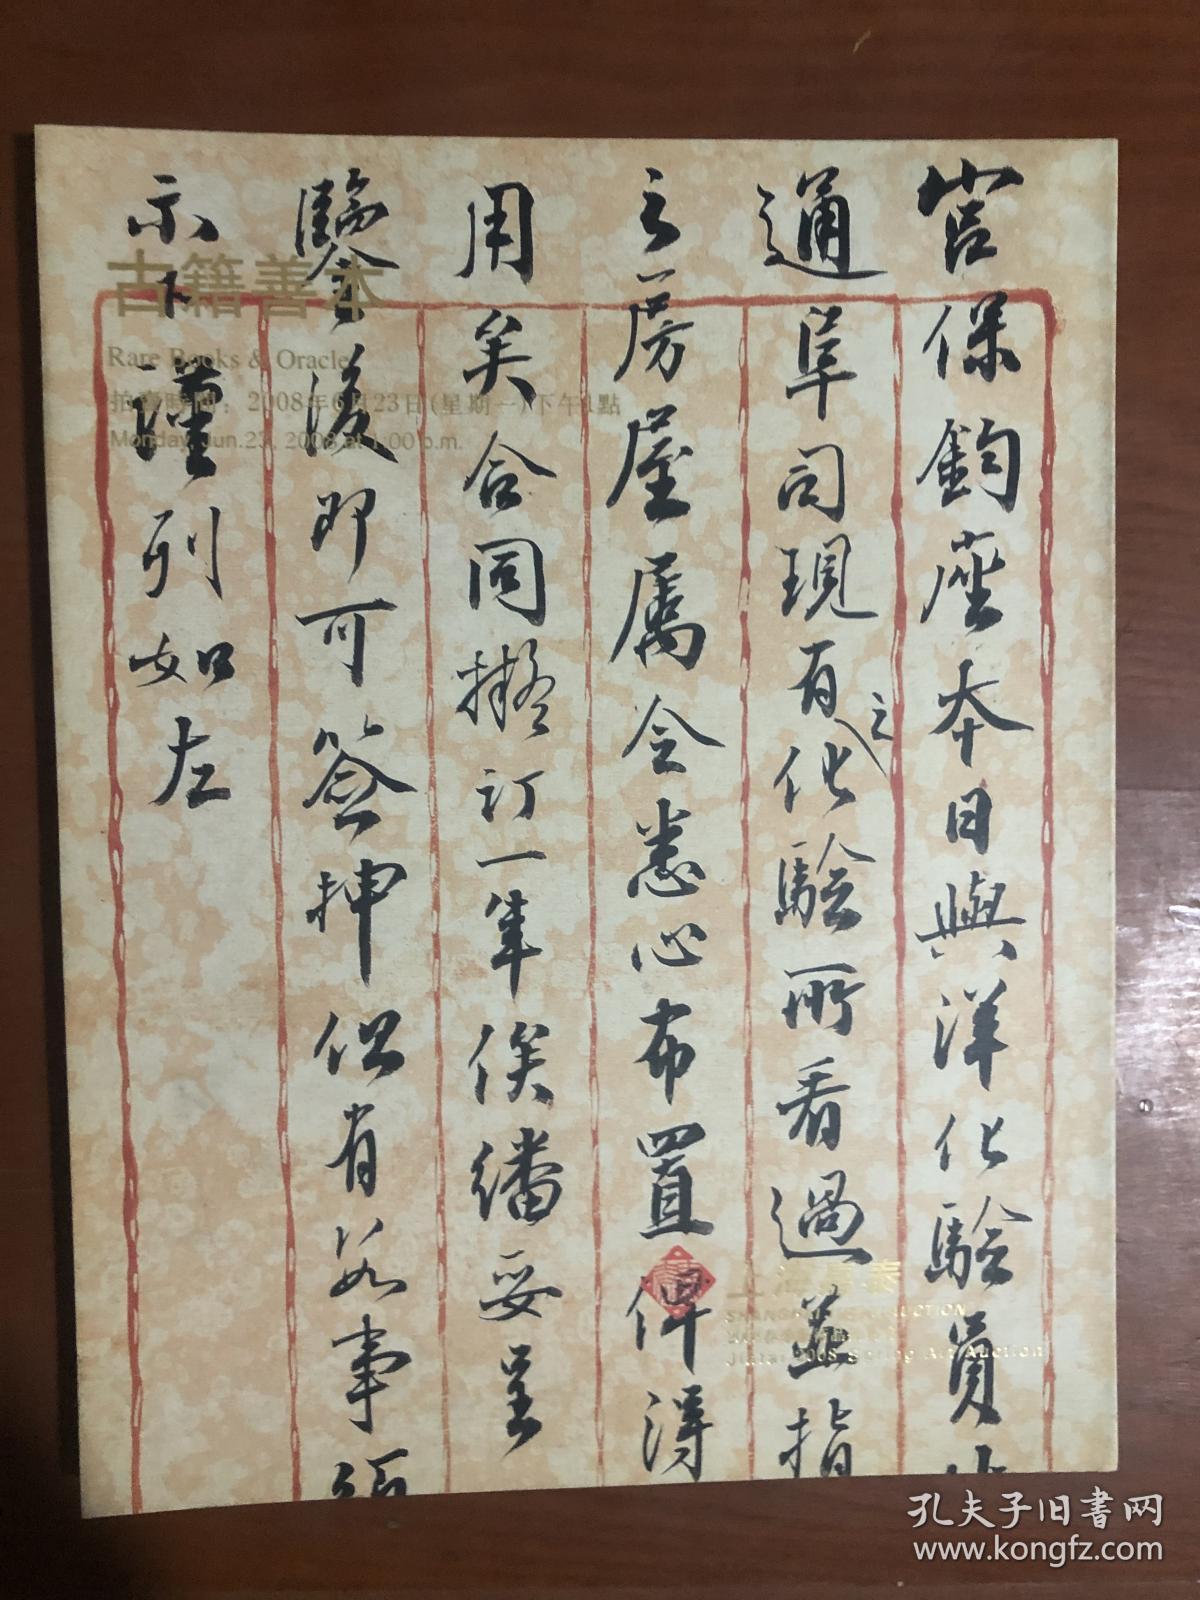 宫保鈞座本日與洋化驗員
通阜司現有之化驗所看過並指
之房屋屬令悉心布置俾得
用矣合同擬訂一年俟繙妥呈
覽後即可簽押但有數事須
示下謹列如左
古籍善本
Rare Books & Oracle
拍賣時間：2008年6月23日(星期一)下午1點
Monday, Jun.23, 2008 at 1:00 p.m.
上海
AUCTION
2008 Spring Art Auction
孔夫子旧书网
www.kongfz.com